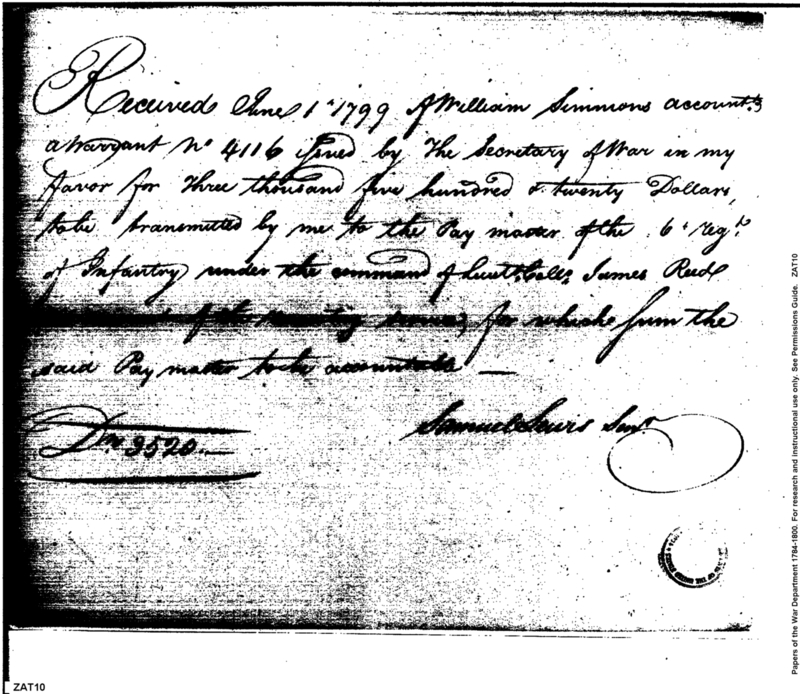 Received June 1st 1799 of William Simmons accountt
a Warrant No 4116 issued by The Secretary of War in my
favor for Three thousand five hundred & twenty Dollars,
to be transmitted by me to the Pay master of the 6th regt
of Infantry under the command of Lieutt Coll James Read
of the recruiting service, for which sum the
said Pay master to be accountable —
Drs 3520.—
Samuel Lewis Senr
ZAT10
Papers of the War Department 1784-1800. For research and instructional use only. See Permissions Guide. ZAT10